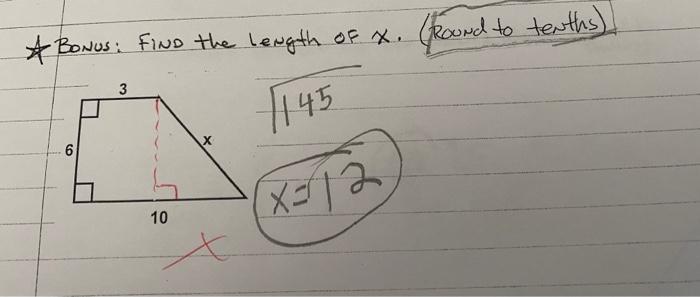 ☆ BONUS: FIND the Length OF x. (Round to tenths)
3
√145
6
x
x=12
10